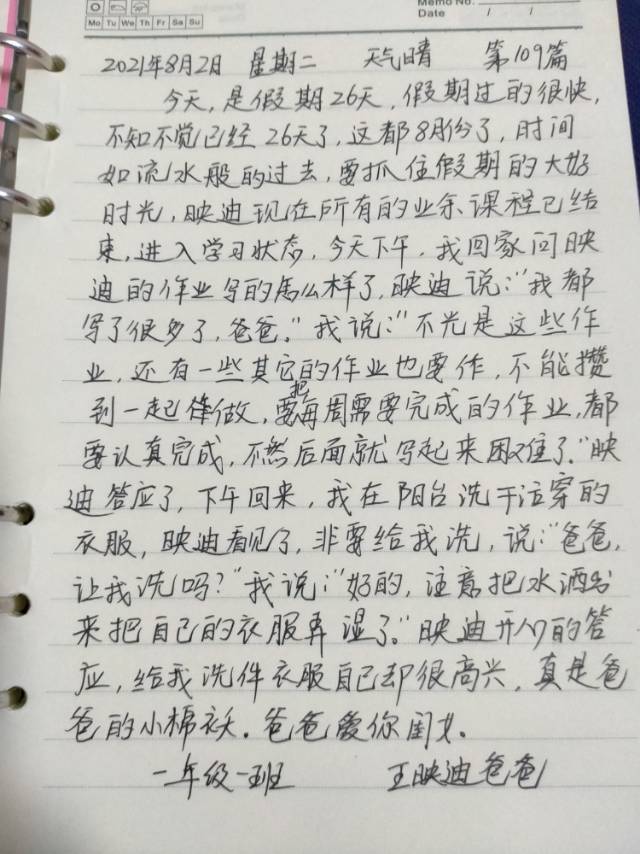 Memo No.
Mo Tu We Th Fr Sa Su
Date / /
2021年8月2日 星期二 天气晴 第109篇
今天,是假期26天,假期过的很快,
不知不觉已经26天了,这都8月份了,时间
如流水般的过去,要抓住假期的大好
时光,映迪现在所有的业余课程已结
束,进入学习状态,今天下午,我回家问映
迪的作业写的怎么样了,映迪说:“我都
写了很多了,爸爸。”我说:“不光是这些作
业,还有一些其它的作业也要作,不能攒
到一起做,要把每周需要完成的作业,都
要认真完成,不然后面就写起来困难了。”映
迪答应了,下午回来,我在阳台洗干活穿的
衣服,映迪看见了,非要给我洗,说:“爸爸,
让我洗吗?”我说:“好的,注意把水洒出
来把自己的衣服弄湿了。”映迪开心的答
应,给我洗件衣服自己却很高兴,真是爸
爸的小棉袄。爸爸爱你闺女。
一年级一班 王映迪爸爸